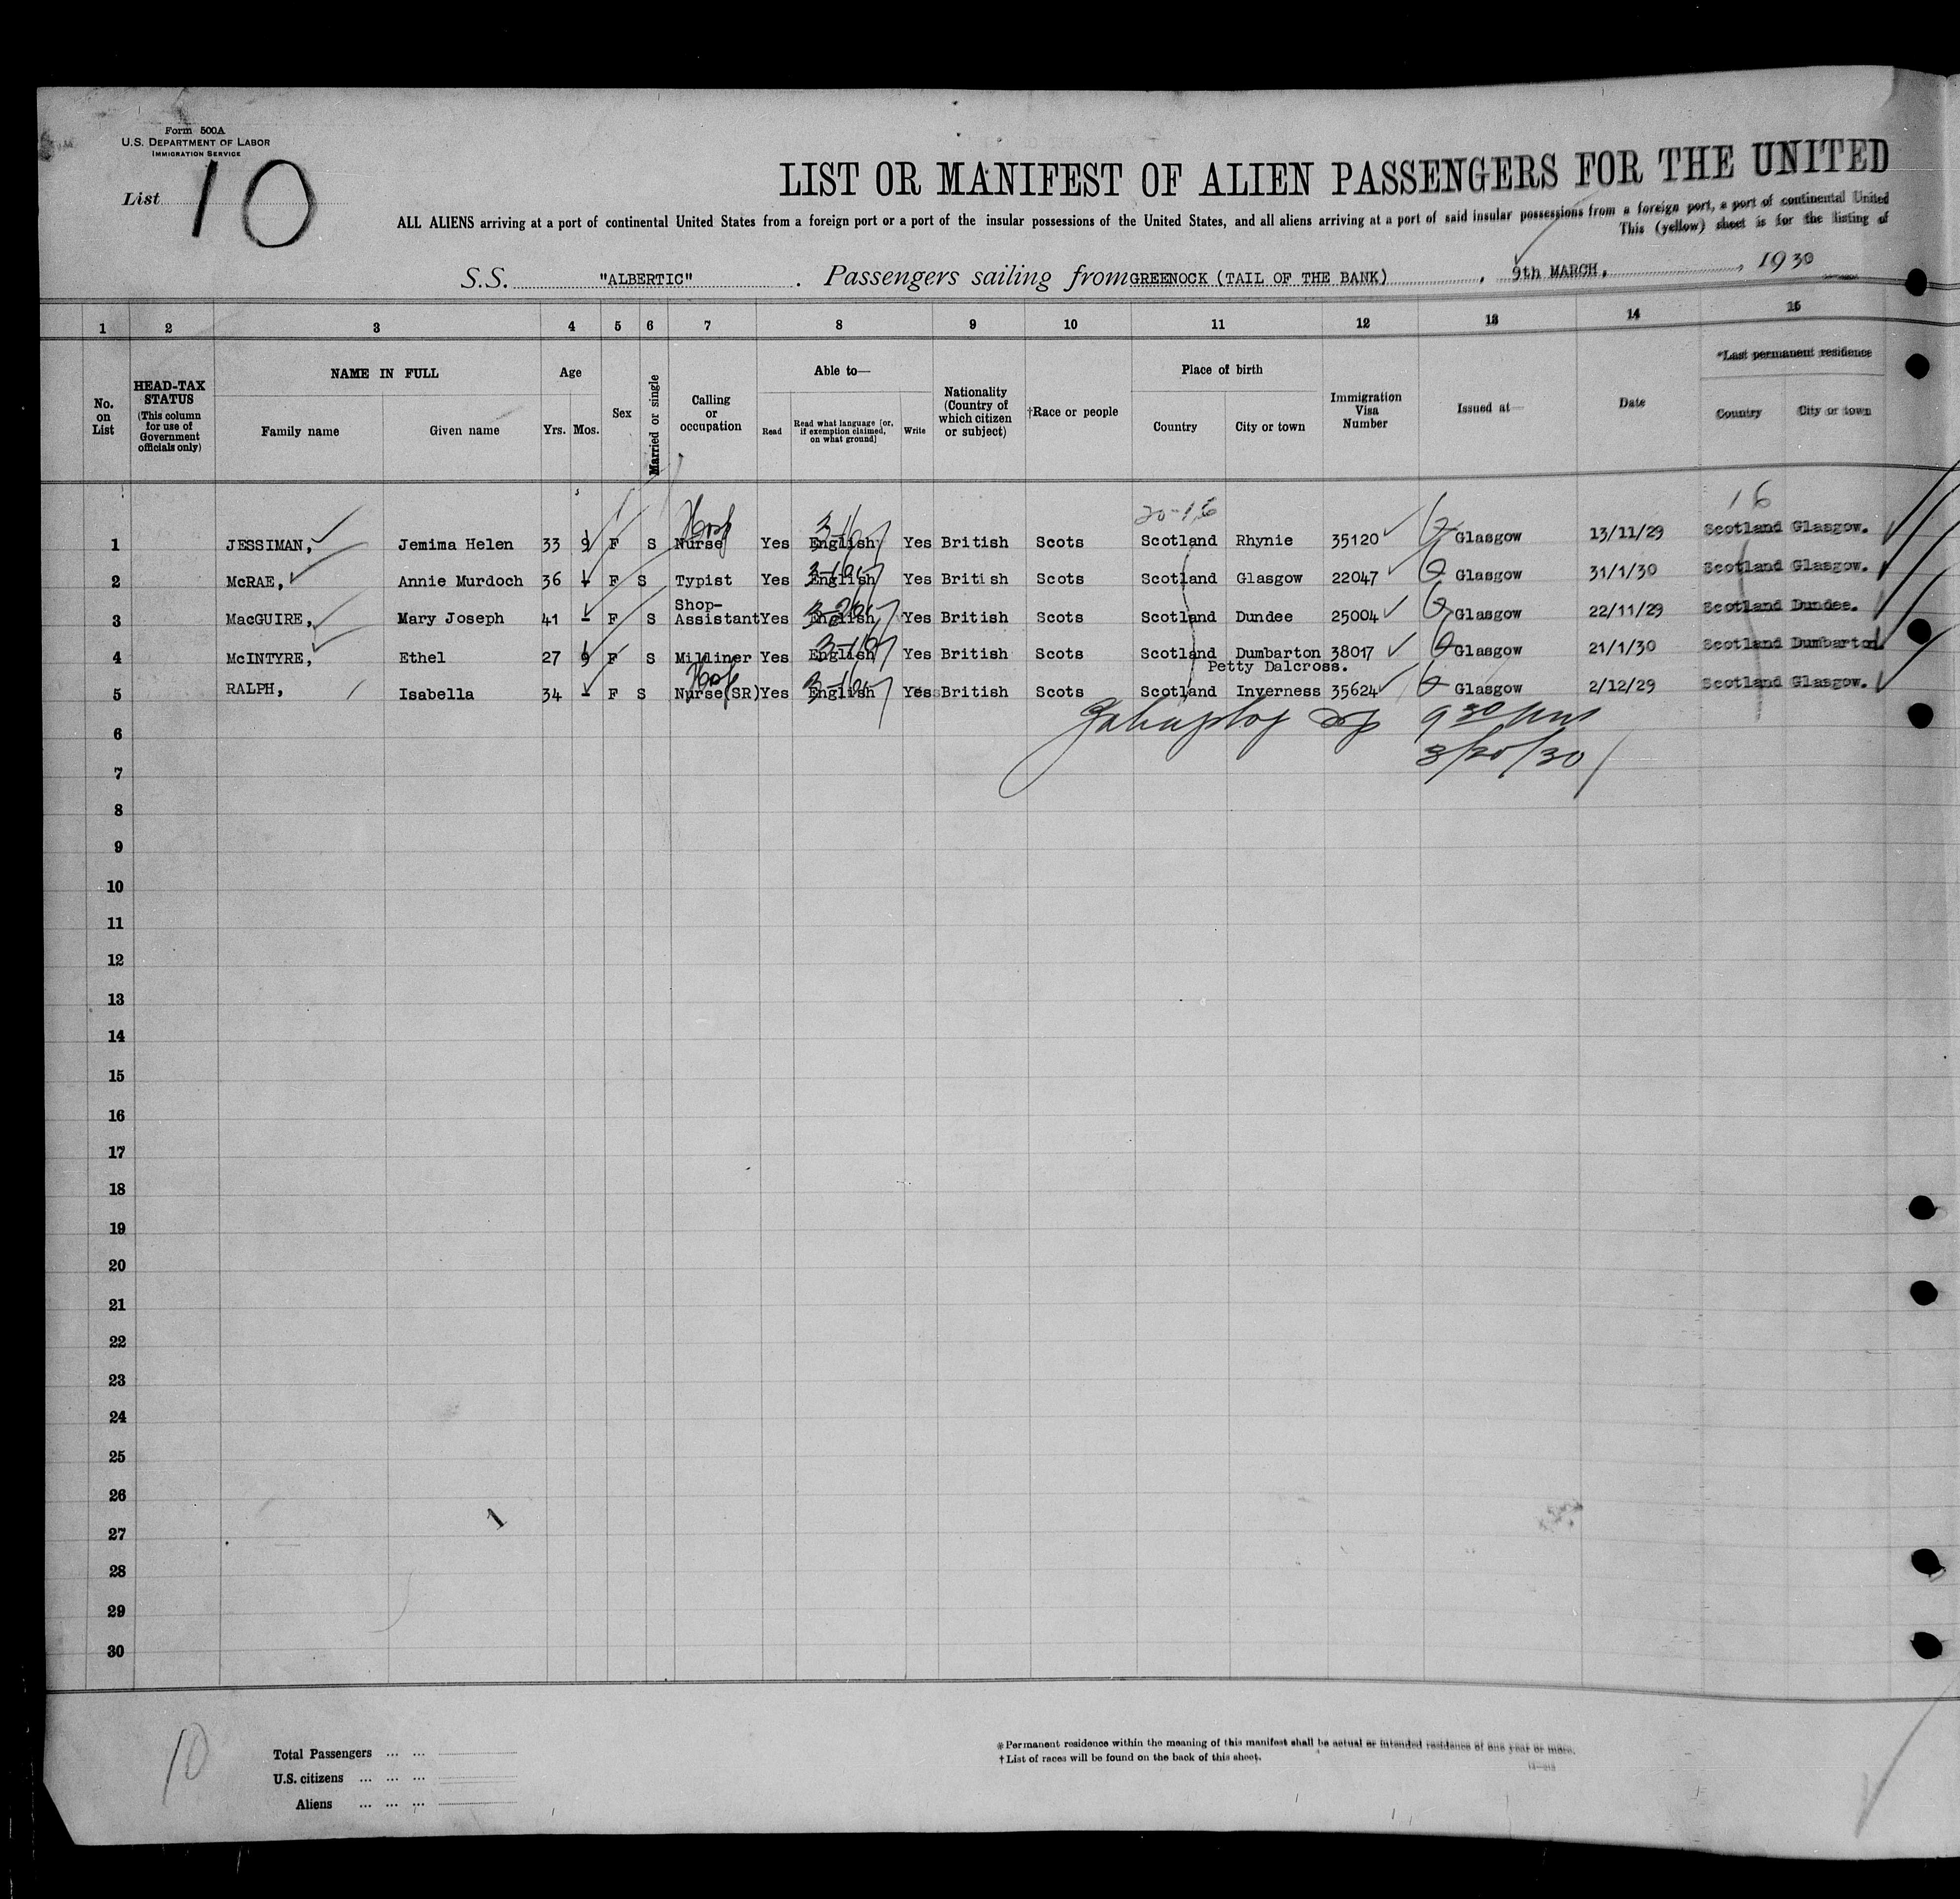 Form 500A
U.S. DEPARTMENT OF LABOR
IMMIGRATION SERVICE
List 10
LIST OR MANIFEST OF ALIEN PASSENGERS FOR THE UNITED
ALL ALIENS arriving at a port of continental United States from a foreign port or a port of the insular possessions of the United States, and all aliens arriving at a port of said insular possessions from a foreign port, a port of continental United
This (yellow) sheet is for the listing of
S.S. "ALBERTIC" . Passengers sailing from GREENOCK (TAIL OF THE BANK) , 9th MARCH, , 1930
1 2 3 4 5 6 7 8 9 10 11 12 13 14 15
No. on List
HEAD-TAX STATUS (This column for use of Government officials only)
NAME IN FULL
Family name Given name
Age
Yrs. Mos.
Sex
Married or single
Calling or occupation
Able to—
Read Read what language [or, if exemption claimed, on what ground] Write
Nationality (Country of which citizen or subject)
†Race or people
Place of birth
Country City or town
Immigration Visa Number
Issued at—
Date
*Last permanent residence
Country City or town
20-16 16
1 JESSIMAN, Jemima Helen 33 9 F S Hosp Nurse Yes English Yes British Scots Scotland Rhynie 35120 Glasgow 13/11/29 Scotland Glasgow.
2 McRAE, Annie Murdoch 36 - F S Typist Yes English Yes British Scots Scotland Glasgow 22047 Glasgow 31/1/30 Scotland Glasgow.
3 MacGUIRE, Mary Joseph 41 - F S Shop-Assistant Yes English Yes British Scots Scotland Dundee 25004 Glasgow 22/11/29 Scotland Dundee.
4 McINTYRE, Ethel 27 9 F S Milliner Yes English Yes British Scots Scotland Dumbarton 38017 Glasgow 21/1/30 Scotland Dumbarton.
Petty Dalcross.
5 RALPH, Isabella 34 - F S Hosp Nurse(SR) Yes English Yes British Scots Scotland Inverness 35624 Glasgow 2/12/29 Scotland Glasgow.
6 9 30 pm
7 3/20/30
8
9
10
11
12
13
14
15
16
17
18
19
20
21
22
23
24
25
26
27
28
29
30
10
Total Passengers ... ...
U.S. citizens ... ... ...
Aliens ... ... ...
* Permanent residence within the meaning of this manifest shall be actual or intended residence of one year or more.
† List of races will be found on the back of this sheet.